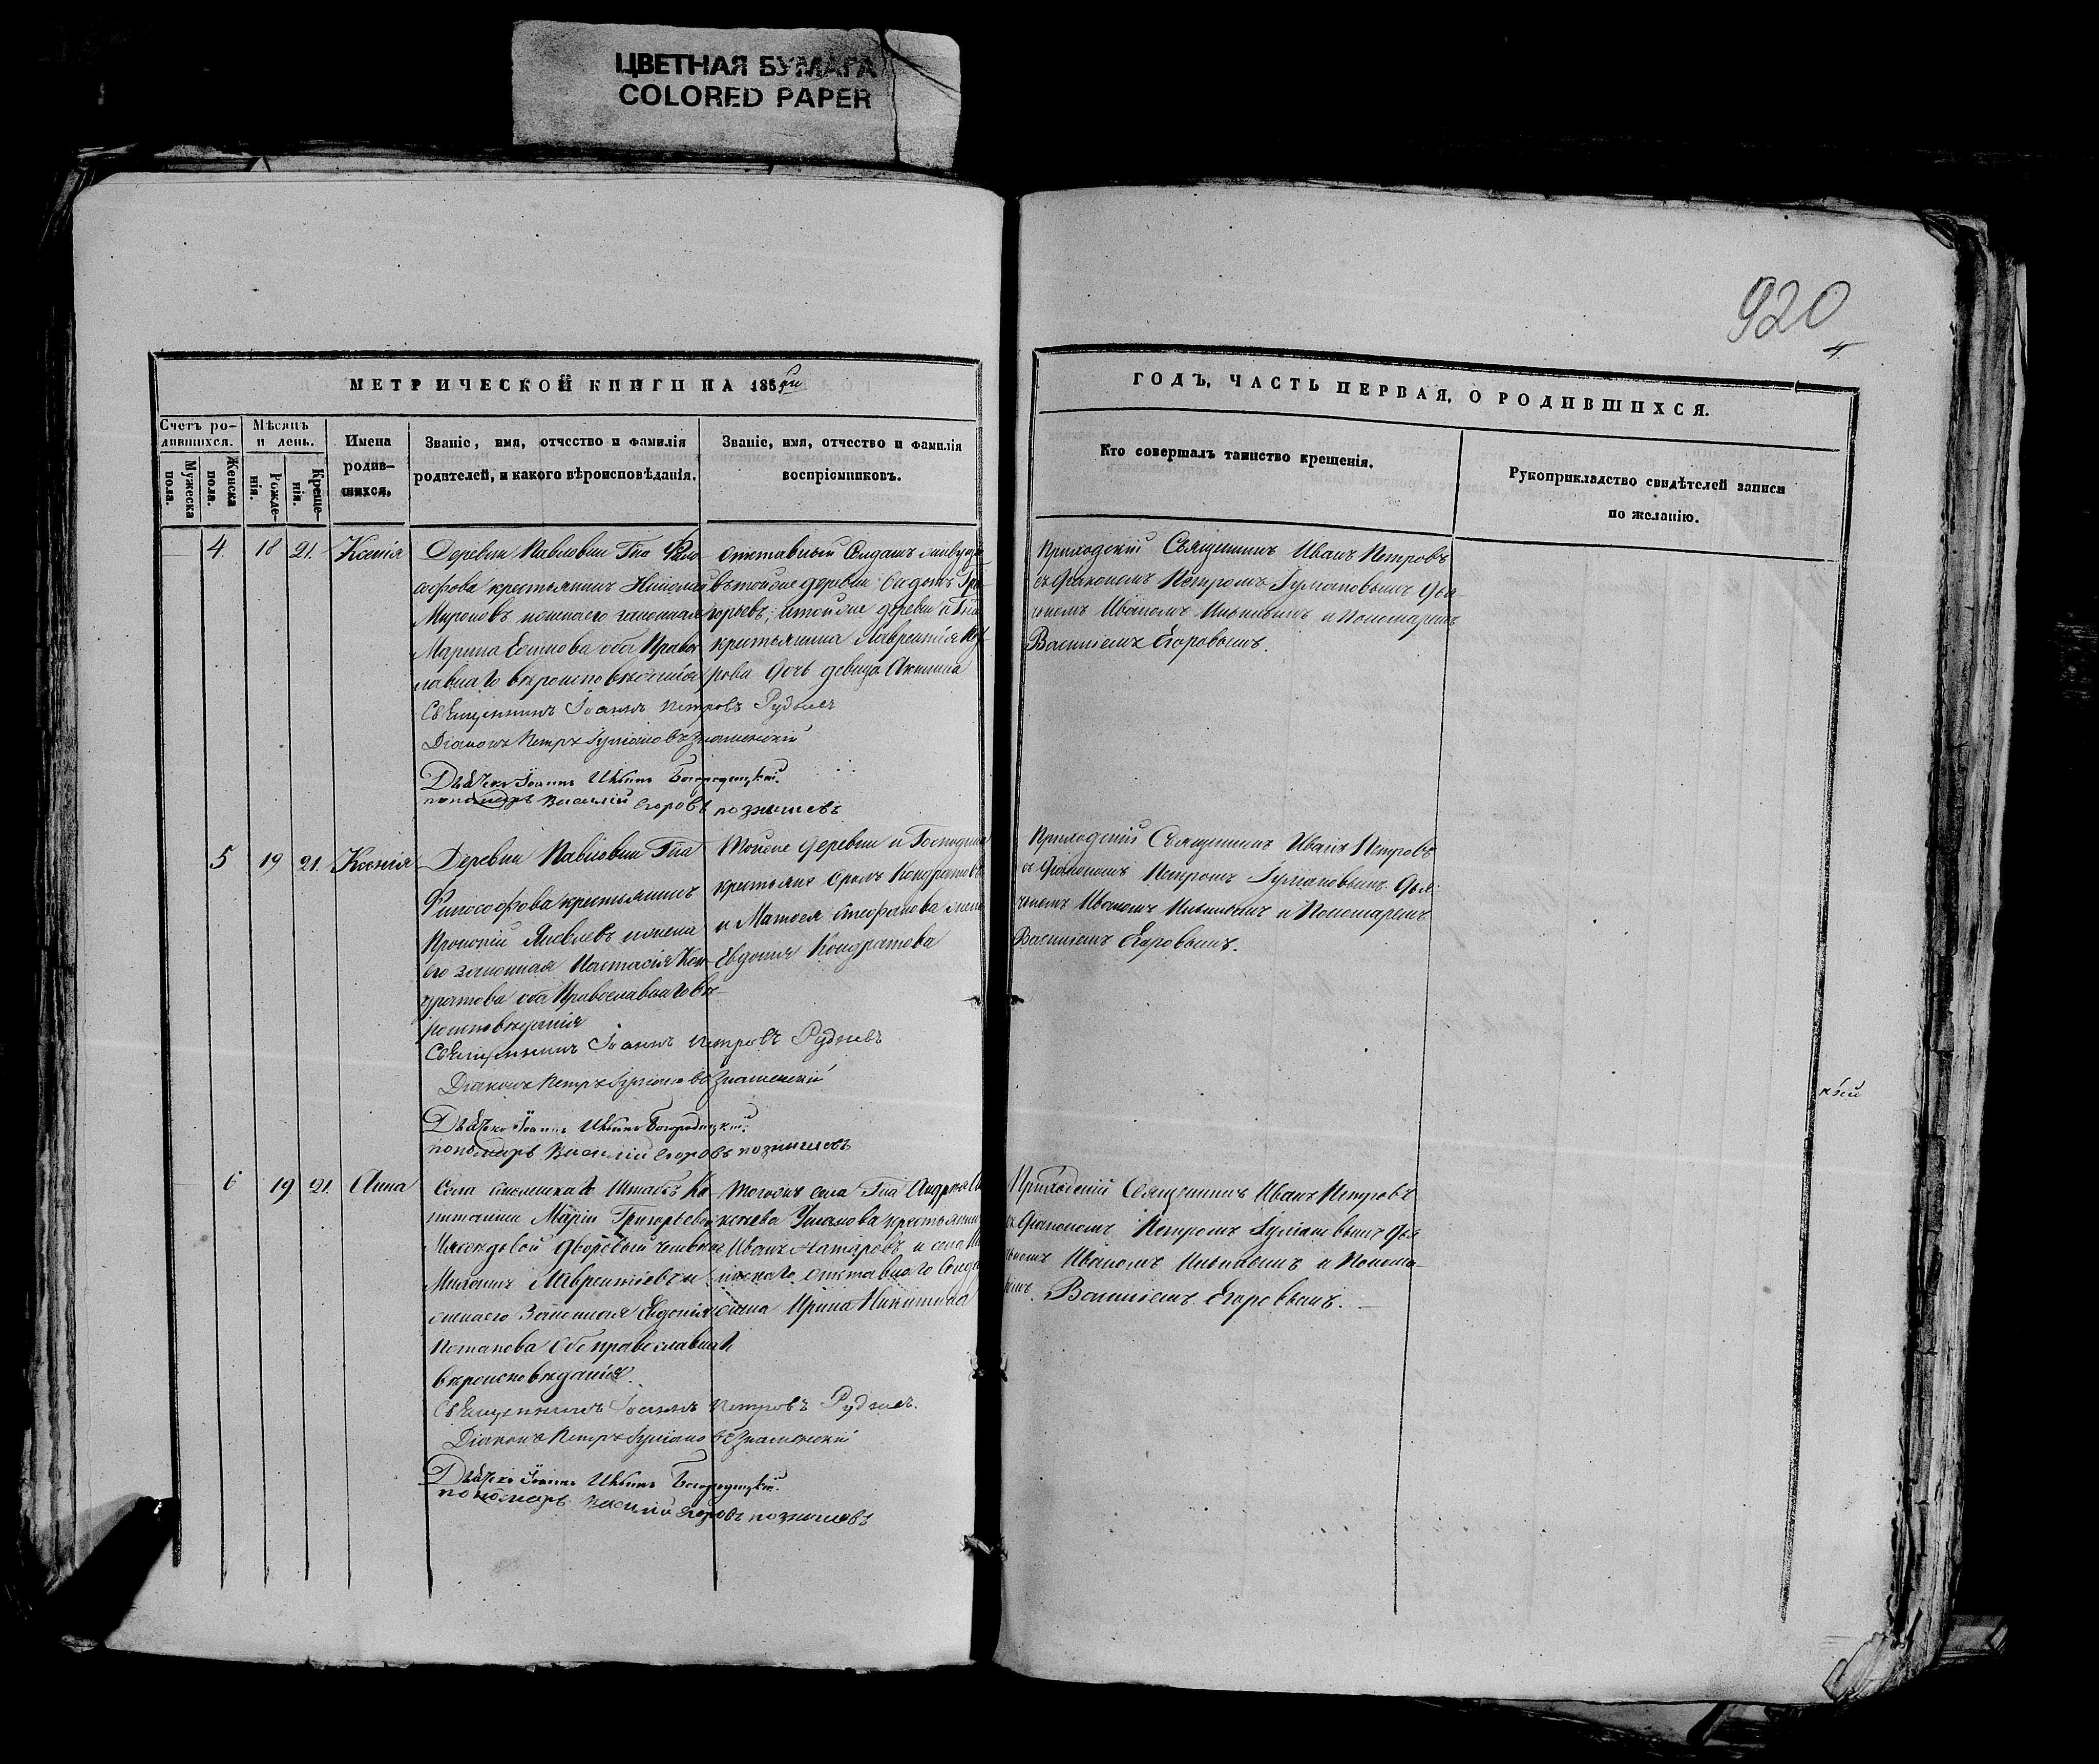 ЦВЕТНАЯ БУМАГА
COLORED PAPER
920
4
МЕТРИЧЕСКОЙ КНИГИ НА 185
ГОДЪ, ЧАСТЬ ПЕРВАЯ, О РОДИВШИХСЯ.
Счетъ ро-
дившихся.
Мужеска
пола.
Женска
пола.
Мѣсяцъ
и день.
Рожде-
нія.
Креще-
нія.
Имена
родив-
шихся.
Званіе, имя, отчество и фамилія
родителей, и какого вѣроисповѣданія.
Званіе, имя, отчество и фамилія
воспріемниковъ.
Кто совершалъ таинство крещенія.
Рукоприкладство свидѣтелей записи
по желанію.
4. 18 21. Ксенія
Деревни Павловки Гна Фило
софова крестьянинъ Николай
Мироновъ и жена его законная
Марина Іоакимова оба Правос
лавнаго вѣроисповѣданія
Священникъ Іоаннъ Петровъ Рудневъ
Діаконъ Петръ Знаменскій
Дьячекъ Іоаннъ Богородицкій.
пономарь Василій Егоровъ познышевъ
отставный Солдатъ живущій
въ той же деревни Гри
горьевъ; и той же деревни и Гна
крестьянина Лаврентія
рова дочь девица Акилина
Приходскій Священникъ Иванъ Петровъ
съ діакономъ Петромъ дья
чкомъ Иваномъ и Пономаремъ
Василіемъ Егоровымъ.
5 19 21. Ксенія
Деревни Павловки Гна
Философова крестьянинъ
Прокопій Яковлевъ и жена
его законная Настасія Кон
дратова оба Православнаго вѣ-
роисповѣданія
Священникъ Іоаннъ Петровъ Рудневъ
Діаконъ Петръ Знаменскій
Дьячекъ Іоаннъ Богородицкій.
пономарь Василій Егоровъ познышевъ
Тойже деревни и Господина
крестьяне Кондратовъ
и Матвея Стефанова жена
Евдокія Кондратова
Приходскій Священникъ Иванъ Петровъ
съ діакономъ Петромъ дья-
чкомъ Иваномъ и Пономаремъ
Василіемъ Егоровымъ.
6 19 21. Анна
Села Штабсъ Ка
питанши Маріи Григорьевой
Мясоѣдовой дворовый человекъ
Михаилъ Лаврентіевъ и
жена его Законная Евдокія
Потапова оба православнаго
вѣроисповѣданія.
Священникъ Іоаннъ Петровъ Рудневъ.
Діаконъ Петръ Знаменскій
Дьячекъ Іоаннъ Богородицкій.
пономарь Василій Егоровъ познышевъ
Тогоже села Гна Андрея
Ушакова крестьянинъ
Иванъ и села
отставнаго Солда
Ирина Никитина
Приходскій Священникъ Иванъ Петровъ
съ діакономъ Петромъ дья
чкомъ Иваномъ и Понома
ремъ Василіемъ Егоровымъ.
кій